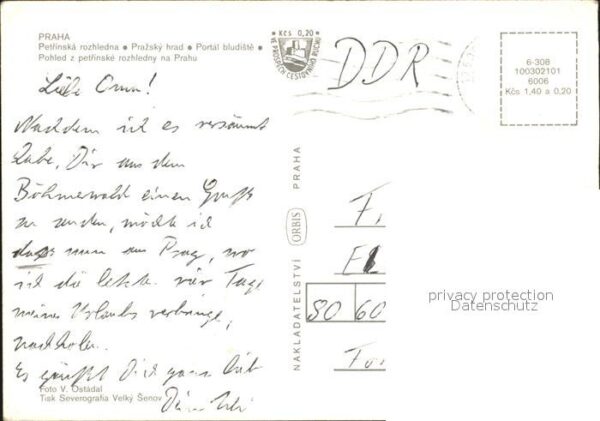 PRAHA
Petřínská rozhledna • Pražský hrad • Portál bludiště •
Pohled z petřínské rozhledny na Prahu
Kčs 0,20
VE PROSPĚCH CESTOVNÍHO RUCHU
DDR
6-308
100302101
6006
Kčs 1,40 a 0,20
Liebe Oma!
Nachdem ich es versäumt
habe, Dir aus dem
Böhmerwald einen Gruß
zu senden, möchte ich
das nun aus Prag, wo
ich die letzten vier Tage
meines Urlaubs verbringe,
nachholen.
Es grüßt Dich ganz lieb
Foto V. Ostádal
Tisk Severografia Velký Šenov
Dein
NAKLADATELSTVÍ ORBIS PRAHA
F.
EL
80 60
privacy protection
Datenschutz